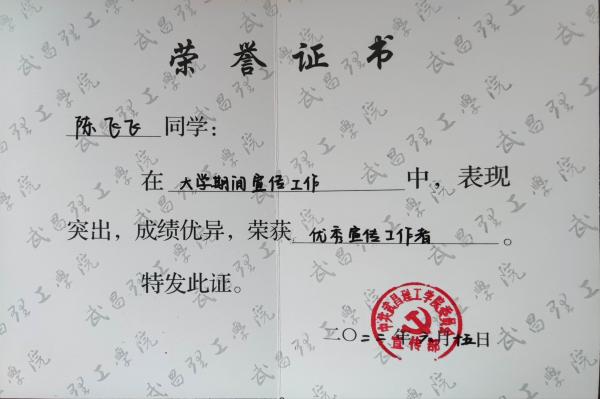 荣誉证书
陈飞飞同学：
在大学期间宣传工作中，表现
突出，成绩优异，荣获优秀宣传工作者。
特发此证。
中共武昌理工学院委员会
宣传部
二〇二二年 月十五日
武昌理工學院